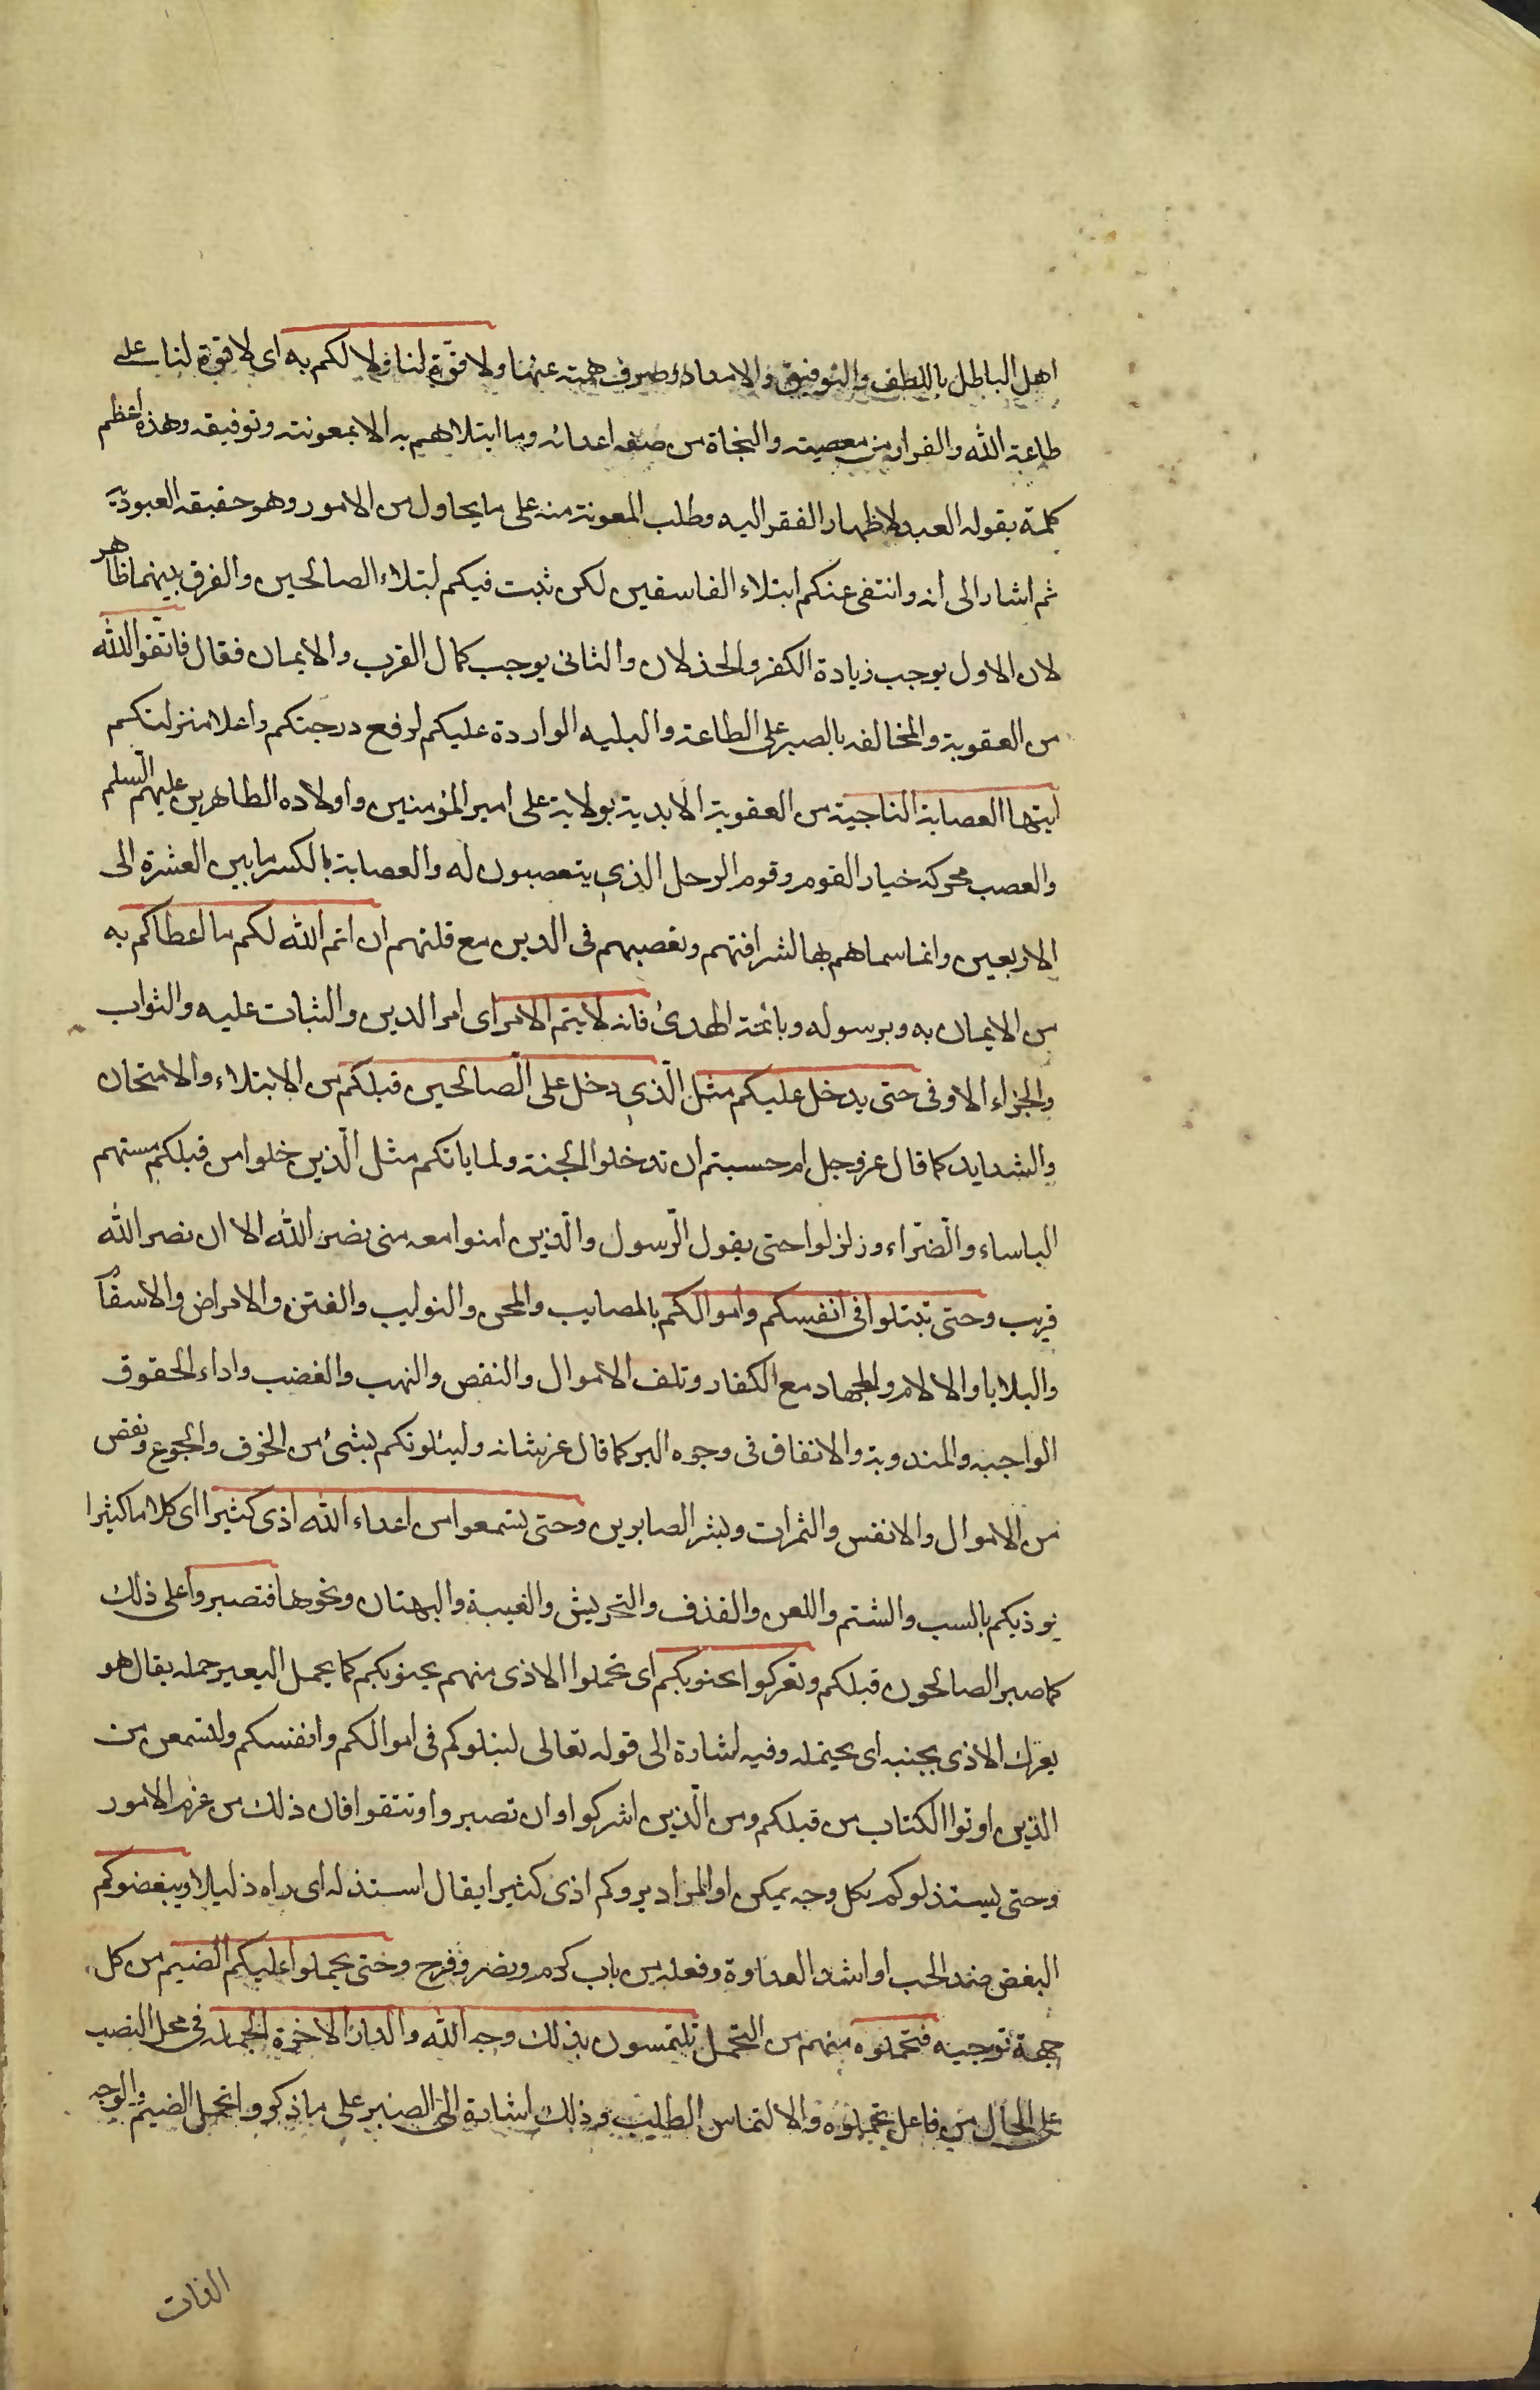 اهل الباطل باللطف والتوفيق والامداد وصرف همته عنها ولا قوّة لنا ولا لكم به اى لا قوة لنا على
طاعة الله والفرار من معصيته والنجاة من صنعه اعدائه وما ابتلاهم به الا بمعونته وتوفيقه وهذه اعظم
كلمة يقوله العبد لاظهار الفقر اليه وطلب المعونة منه على ما يحاول من الامور وهو حقيقة العبوديّة
ثم اشار الى انه وانتفى عنكم ابتلاء الفاسقين لكن ثبت فيكم ابتلاء الصالحين والفرق بينهما ظاهر
لان الاول يوجب زيادة الكفر والخذلان والثانى يوجب كمال القرب والايمان فقال فاتّقوا الله
من العقوبة والمخالفه بالصبر على الطاعة والبليه الواردة عليكم لرفع درجتكم واعلا منزلتكم
ايتها العصابة الناجية من العقوبة الابدية بولاية على امير المؤمنين واولاده الطاهرين عليهم السلم
والعصب محركة خيار القوم وقوم الرجل الذى يتعصبون له والعصابة بالكسر ما بين العشرة الى
الاربعين وانما سماهم بها لشرافتهم وتعصبهم فى الدين مع قلتهم ان اتم الله لكم ما اعطاكم به
من الايمان به وبرسوله وبائمة الهدى فانه لا يتم الامر اى امر الدين والثبات عليه والثواب
والجزاء الاوفى حتى يدخل عليكم مثل الّذى دخل على الّصالحين قبلكم من الابتلاء والامتحان
والشدايد كما قال عز وجل ام حسبتم ان تدخلوا الجنة ولما ياتكم مثل الّذين خلوا من قبلكم مستهم
الباساء والّضرّاء وزلزلوا حتى يقول الّرسول والّذين امنوا معه متى نصر الله الا ان نصر الله
قريب وحتى تبتلوا فى انفسكم واموالكم بالمصايب والمحن والنوايب والفتن والامراض والاسقام
والبلايا والالام والجهاد مع الكفار وتلف الاموال والنقص والنهب والغضب واداء الحقوق
الواجبة والمندوبة والانفاق فى وجوه البر كما قال عز شانه ولنبلونكم بشئ من الخوف والجوع ونقص
من الاموال والانفس والثمرات وبشر الصابرين وحتى تسمعوا من اعداء الله اذى كثيرا اى كلاما كثيرا
يوذيكم بالسب والشتم واللعن والقذف والتحريش والغيبة والبهتان ونحوها فتصبروا على ذلك
كما صبر الصالحون قبلكم وتعركوا بجنوبكم اى تحملوا الاذى منهم بجنوبكم كما يحمل البعير حمله يقال هو
يعرك الاذى بجنبه اى يحتمله وفيه اشارة الى قوله تعالى لتبلوكم فى اموالكم وانفسكم ولتسمعن من
الذين اوتوا الكتاب من قبلكم ومن الّذين اشركوا وان تصبروا وتتقوا فان ذلك من عزم الامور
وحتى يستذلوكم بكل وجه يمكن او المراد يروكم اذى كثيرا يقال استذله اى راه ذليلا ويبغضوكم
البغض ضد الحب او اشد العداوة وفعله من باب كرم ونصر وفرح وحتى يحملوا عليكم الضيم من كل
جهة توجيه فتحملوه منهم من التحمل تلتمسون بذلك وجه الله والدار الاخرة الجملة فى محل النصب
على الحال من فاعل تحملوه والالتماس الطلب وذلك اشارة الى الصبر على ما ذكر و اتحمل الضيم والوجه
الذات